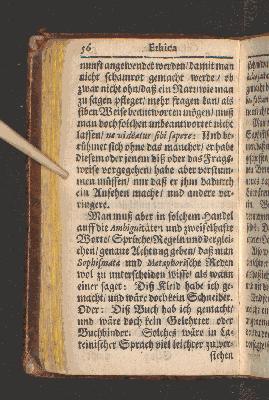 56 Ethica
nunft angewendet werden / damit man
nicht schamrot gemacht werde / ob
zwar nicht ohn / daß ein Narr wie man
zu sagen pfleget / mehr fragen kan / als
sieben Weise beantworten mögen / muß
man doch solchen unbeantwortet nicht
lassen / ne videatur sibi sapere: Und be-
rühmet sich ohne das mancher / er habe
diesem oder jenem diß oder das Frags-
weise vorgegeben / habe aber verstum-
men müssen / nur daß er ihm dadurch
ein Ansehen mache / und andere ver-
ringere.
Man muß aber in solchem Handel
auff die Ambiguitäten und zweiffelhaffte
Worte / Sprüche / Regeln und derglei-
chen / genaue Achtung geben / daß man
Sophismata und Metaphorische Reden
wol zu unterscheiden wisse / als wann
einer saget: Diß Kleid habe ich ge-
macht / und wäre doch kein Schneider.
Oder: Diß Buch hab ich gemacht /
und wäre doch kein Gelehrter oder
Buchbinder. Solches wäre in La-
teinischer Sprach viel leichter zu ver-
stehen